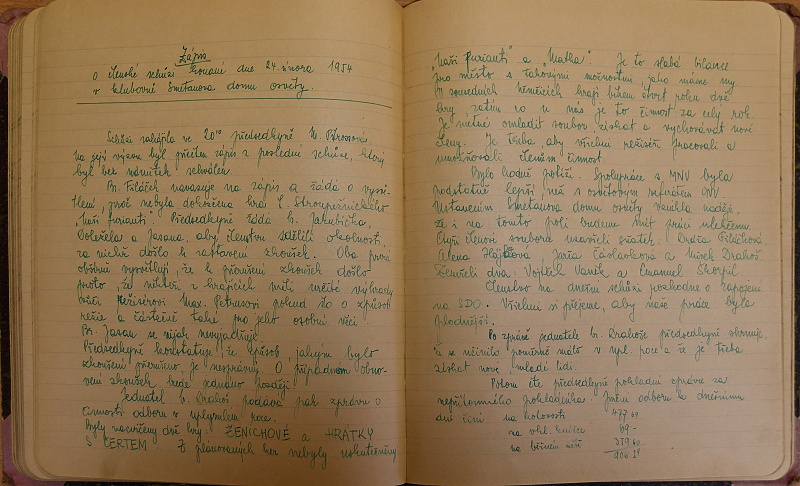 Zápis
o členské schůzi konané dne 24. února 1954
v klubovně Smetanova domu osvěty.
Schůzi zahájila ve 20¹⁰ předsedkyně
na její výzvu byl přečten zápis z poslední schůze, který
byl bez námitek schválen.
Br. Filáček navazuje na zápis a žádá o vysvě-
tlení, proč nebyla dokončena hra L. Stroupežnického
„Naši furianti". Předsedkyně žádá b. Jakubíčka,
Doležela a Jasana, aby členstvu sdělili okolnosti,
za nichž došlo k zastavení zkoušek. Oba prvně
obšírně vysvětlují, že k přerušení zkoušek došlo
proto, že někteří z hrajících měli určité výhrady
vůči režisérovi Max. Petrasovi pokud šlo o způsob
režie a částečně také pro jeho osobní věci.
Br. Jasan se nijak nevyjadřuje.
Předsedkyně konstatuje, že způsob, jakým bylo
zkoušení přerušeno, je nesprávný. O případném obno-
vení zkoušek bude jednáno později.
Jednatel b. Drahoš podává pak zprávu o
činnosti odboru v uplynulém roce.
Byly nacvičeny dvě hry: ŽENICHOVÉ a HRÁTKY
S ČERTEM. Z plánovaných her nebyly uskutečněny
„Naši furianti" a „Matka". Je to slabá bilance
pro město s takovými možnostmi, jako máme my.
V sousedních Němčicích hrají během čtvrt roku dvě
hry, zatím co u nás je to činnost za celý rok.
Je nutné omladit soubor, získat a vychovávat nové
členy. Je třeba, aby všichni režiséři pracovali a
umožňovali členům činnost.
Bylo hodně potíží. Spolupráce s MNV byla
podstatně lepší, než s osvětovým referátem ONV.
Ustavením Smetanova domu osvěty vznikla naděje,
že i na tomto poli budeme mít práci ulehčenu.
Čtyři členové souboru uzavřeli sňatek:
Alena Hájková, Jarča Čáslavková a Mirek Drahoš.
Zemřeli dva: Vojtěch Vaněk a Emanuel Škorpil.
Členstvo na dnešní schůzi rozhodne o zapojení
na SDO. Všichni si přejeme, aby naše práce byla
plodnější.
Po zprávě jednatele b. Drahoše předsedkyně shrnuje,
že se učinilo poměrně málo v upl. roce a že je třeba
získat nové, mladé lidi.
Potom čte předsedkyně pokladní zprávu za
nepřítomného pokladníka. Jmění odboru k dnešnímu
dni činí na hotovosti 477 69
na vkl. knížce 69 -
na běžném účtě 359 60
906 29